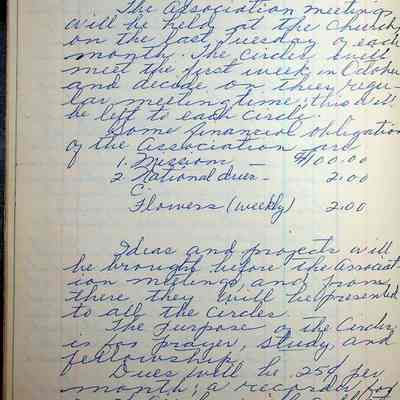 The Association meeting
will be held at the Church
on the last Tuesday of each
month. The Circles will
meet the first week in October
and decide on their regu-
lar meeting time; this will
be left to each Circle.
Some financial obligation
of the Association are
1. Missions — $100.00
2. National dues — 2.00
C.
Flowers (weekly) 2.00
Ideas and projects will
be brought before the Associat-
ion meetings and from
there they will be presented
to all the Circles.
The Purpose of the Circles
is for prayer, study, and
fellowship.
Dues will be 25¢ per
month; a recorder for